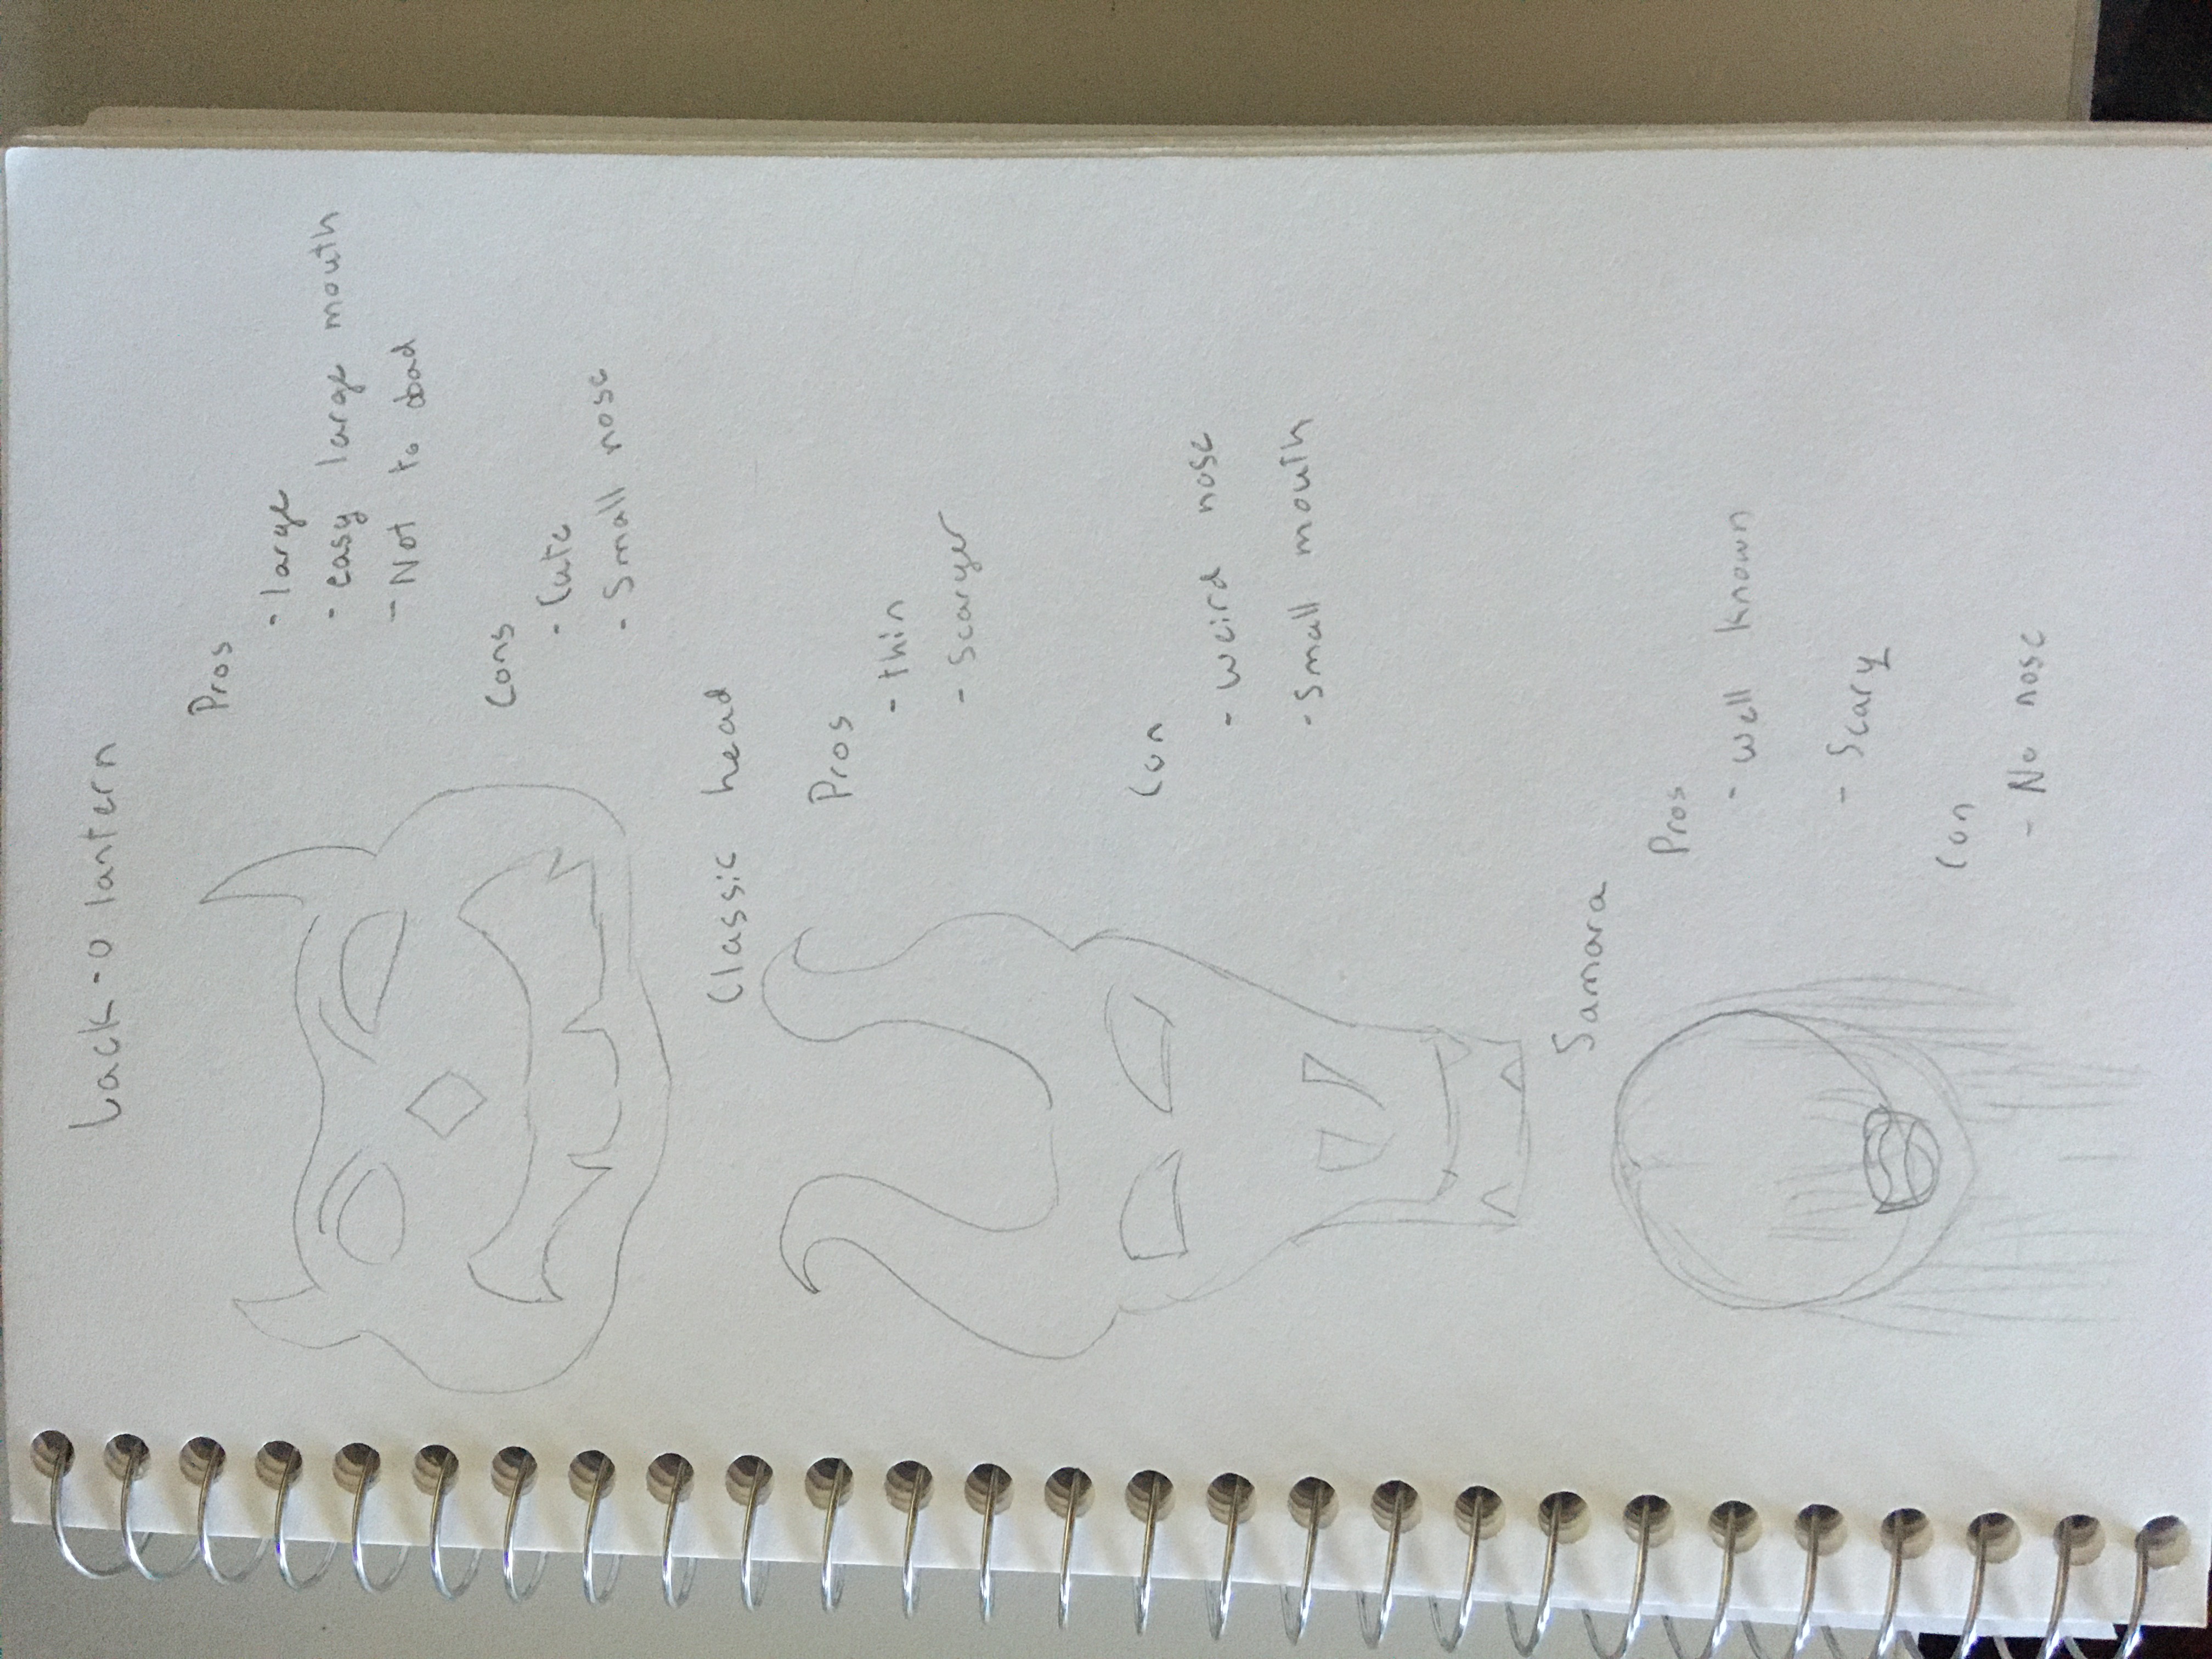 Lack-o lantern
Pros
- large
- easy large mouth
- Not to bad
Cons
- Cute
- Small nose
Classic head
Pros
- thin
- Scaryer
Con
- weird nose
- Small mouth
Samara
Pros
- well known
- Scary
Con
- No nose